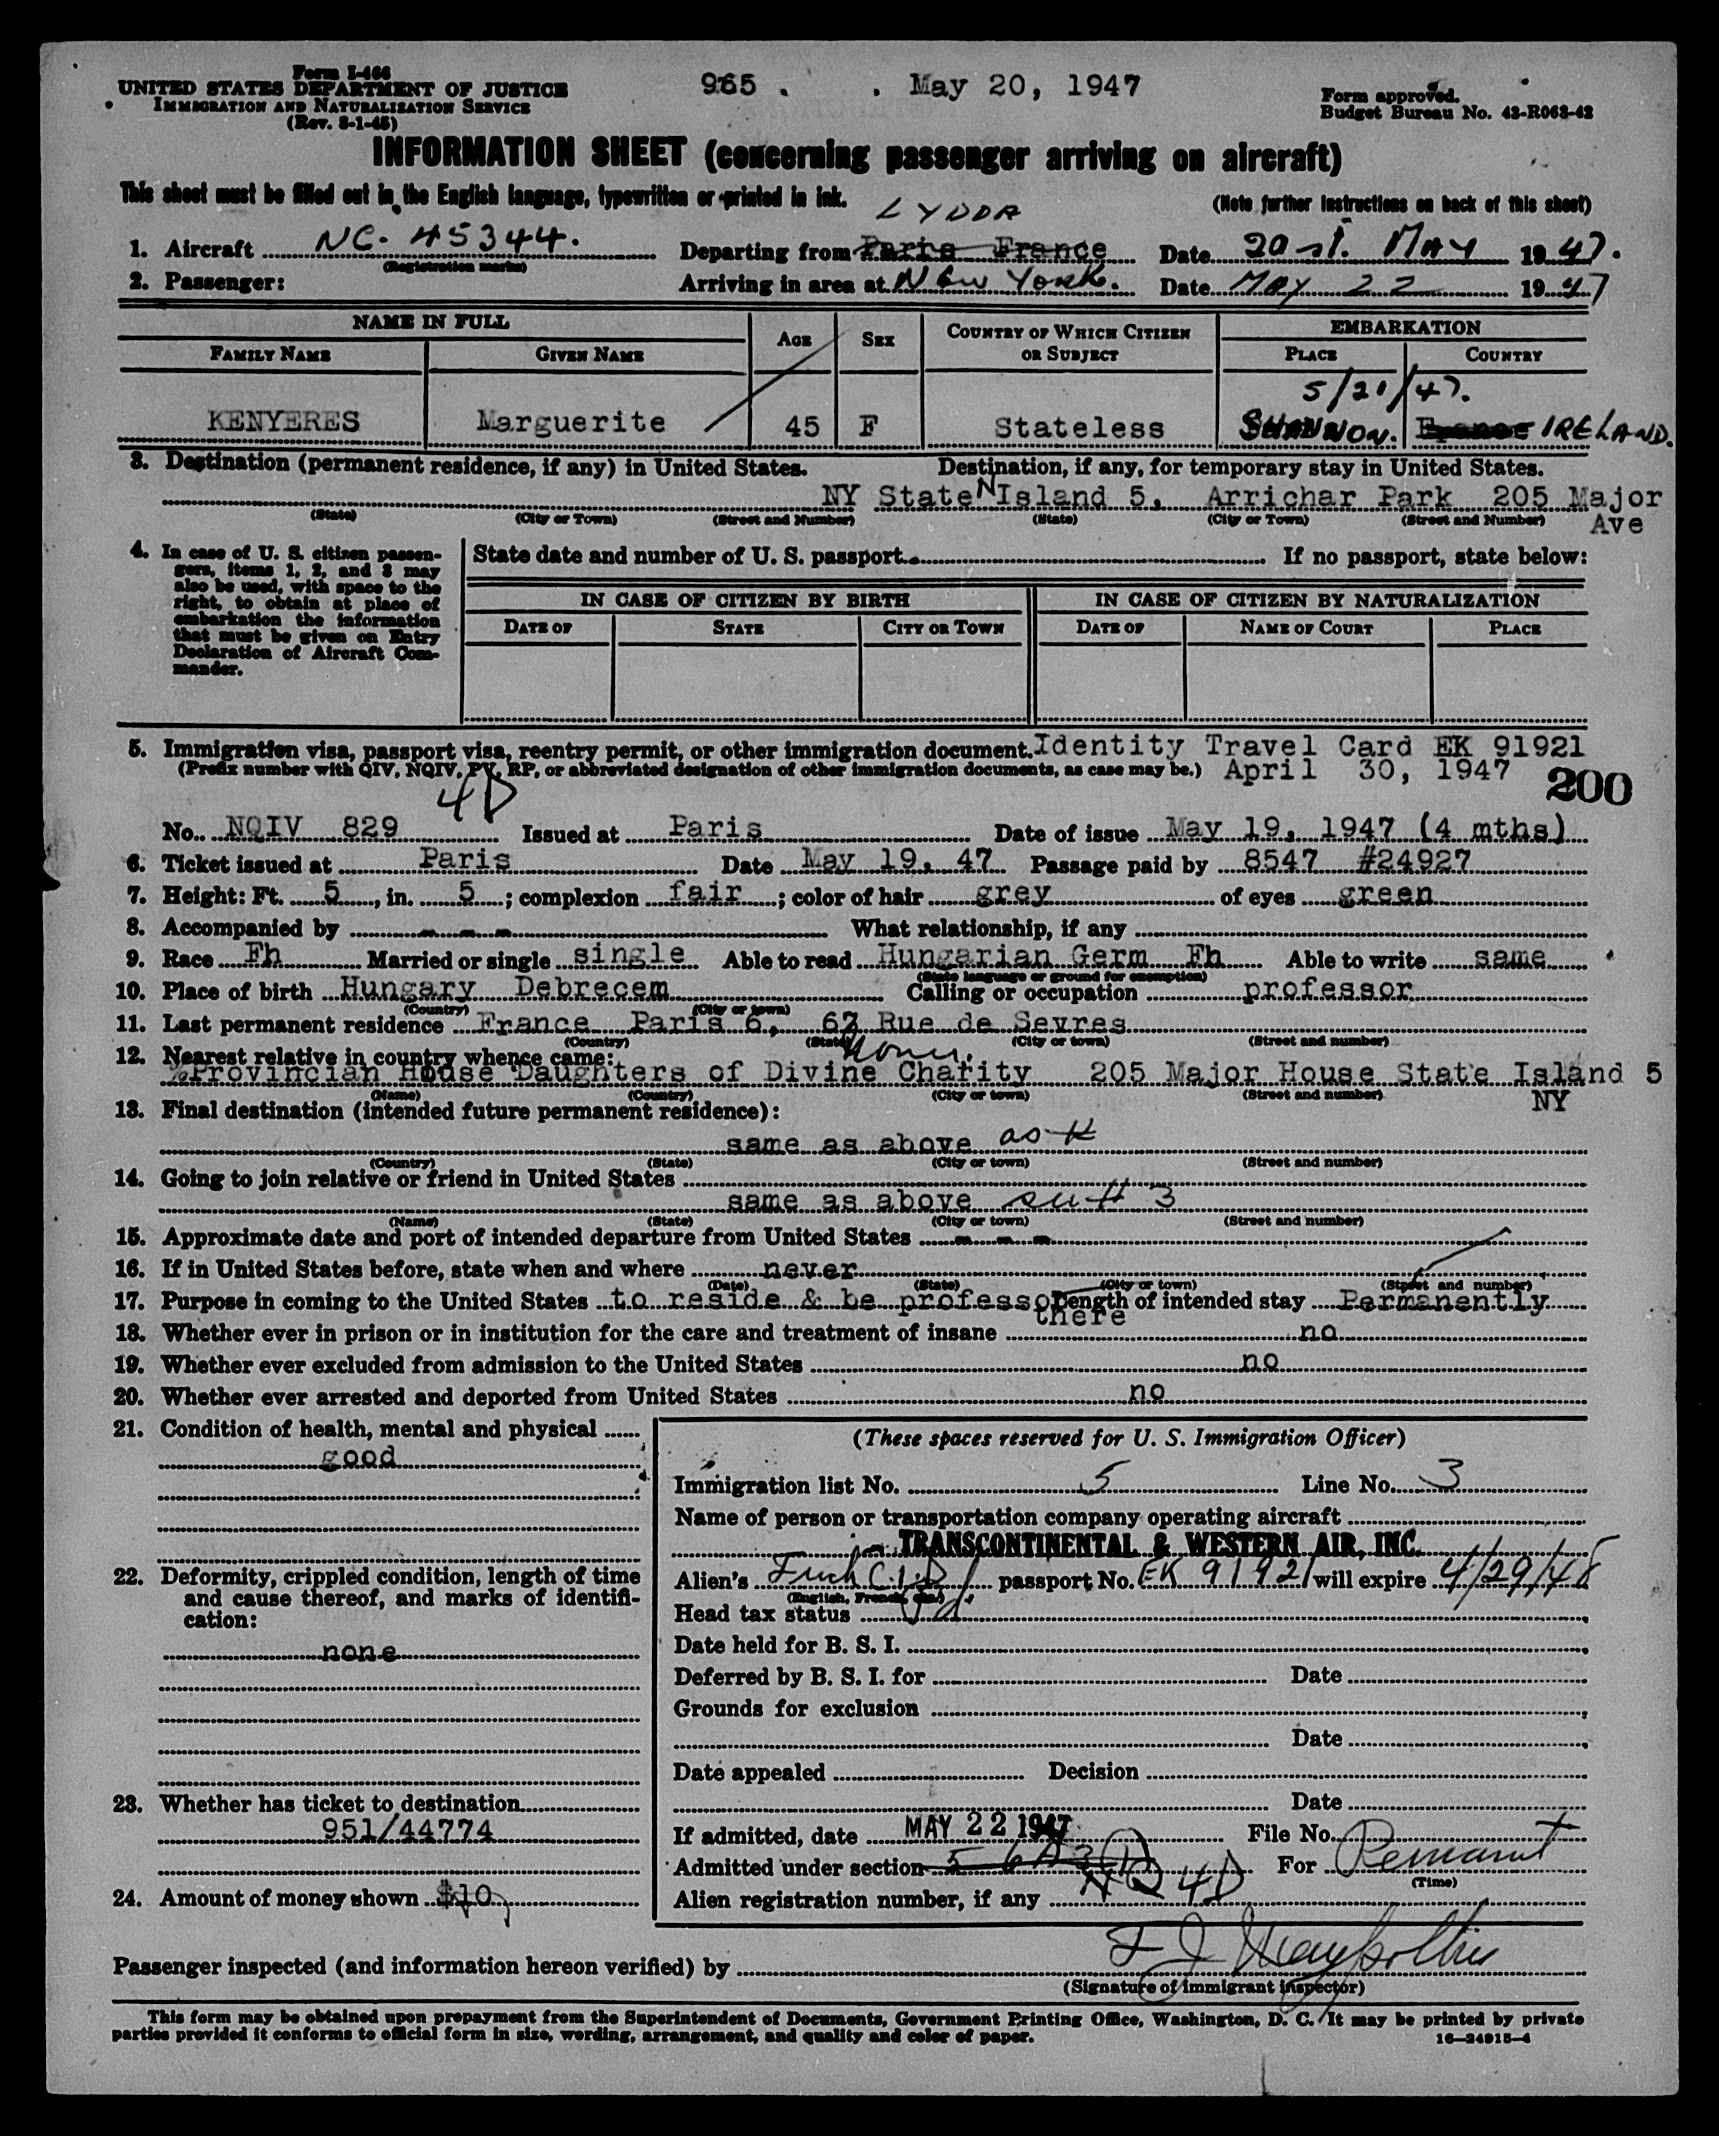 Form I-466
UNITED STATES DEPARTMENT OF JUSTICE
IMMIGRATION AND NATURALIZATION SERVICE
(Rev. 3-1-45)
965 . . May 20, 1947
Form approved.
Budget Bureau No. 43-R063-42
INFORMATION SHEET (concerning passenger arriving on aircraft)
This sheet must be filled out in the English language, typewritten or printed in ink.
(Note further instructions on back of this sheet)
LYDDA
1. Aircraft NC. 45344. Departing from Paris France Date 20 st. MAY 1947.
(Registration marks)
2. Passenger: Arriving in area at New York. Date MAY 22 1947
NAME IN FULL AGE SEX COUNTRY OF WHICH CITIZEN OR SUBJECT EMBARKATION
FAMILY NAME GIVEN NAME PLACE COUNTRY
5/21/47.
KENYERES Marguerite 45 F Stateless SHANNON. France IRELAND.
3. Destination (permanent residence, if any) in United States. Destination, if any, for temporary stay in United States.
NY State N Island 5, Arrichar Park 205 Major
Ave
(State) (City or Town) (Street and Number) (State) (City or Town) (Street and Number)
4. In case of U. S. citizen passengers, items 1, 2, and 3 may also be used, with space to the right, to obtain at place of embarkation the information that must be given on Entry Declaration of Aircraft Commander.
State date and number of U. S. passport. If no passport, state below:
IN CASE OF CITIZEN BY BIRTH IN CASE OF CITIZEN BY NATURALIZATION
DATE OF STATE CITY OR TOWN DATE OF NAME OF COURT PLACE
5. Immigration visa, passport visa, reentry permit, or other immigration document. Identity Travel Card EK 91921
(Prefix number with QIV, NQIV, PV, RP, or abbreviated designation of other immigration documents, as case may be.) April 30, 1947
200
4D
No. NQIV 829 Issued at Paris Date of issue May 19, 1947 (4 mths)
6. Ticket issued at Paris Date May 19, 47 Passage paid by 8547 #24927
7. Height: Ft. 5, in. 5; complexion fair; color of hair grey of eyes green
8. Accompanied by - - - What relationship, if any
9. Race Fh Married or single single Able to read Hungarian Germ Fh Able to write same
(State language or ground for exemption)
10. Place of birth Hungary Debrecem Calling or occupation professor
(Country) (City or town)
11. Last permanent residence France Paris 6, 67 Rue de Sevres
(Country) (State) (City or town) (Street and number)
12. Nearest relative in country whence came: None.
% Provincian House Daughters of Divine Charity 205 Major House State Island 5
NY
(Name) (Country) (City or town) (Street and number)
13. Final destination (intended future permanent residence):
same as above
(Country) (State) (City or town) (Street and number)
14. Going to join relative or friend in United States
same as above 3
(Name) (State) (City or town) (Street and number)
15. Approximate date and port of intended departure from United States - - -
16. If in United States before, state when and where never
(Date) (State) (City or town) (Street and number)
17. Purpose in coming to the United States to reside & be professor there Length of intended stay Permanently
18. Whether ever in prison or in institution for the care and treatment of insane no
19. Whether ever excluded from admission to the United States no
20. Whether ever arrested and deported from United States no
21. Condition of health, mental and physical
good
22. Deformity, crippled condition, length of time and cause thereof, and marks of identification:
none
23. Whether has ticket to destination
951/44774
24. Amount of money shown $10
(These spaces reserved for U. S. Immigration Officer)
Immigration list No. 5 Line No. 3
Name of person or transportation company operating aircraft
TRANSCONTINENTAL & WESTERN AIR, INC.
Alien's passport No. EK 91921 will expire 4/29/48
(English, French, etc.)
Head tax status
Date held for B. S. I.
Deferred by B. S. I. for Date
Grounds for exclusion
Date
Date appealed Decision
Date
If admitted, date MAY 22 1947 File No.
Admitted under section NQ 4D For Permanent
(Time)
Alien registration number, if any
Passenger inspected (and information hereon verified) by
(Signature of immigrant inspector)
This form may be obtained upon prepayment from the Superintendent of Documents, Government Printing Office, Washington, D. C. It may be printed by private
parties provided it conforms to official form in size, wording, arrangement, and quality and color of paper.
16—24915-4